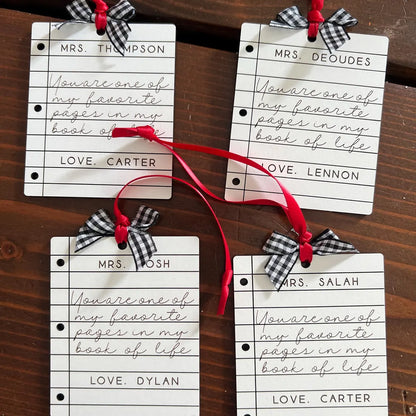 MRS. THOMPSON
You are one of
my favorite
pages in my
book of life
LOVE, CARTER
MRS. DEOUDES
You are one of
my favorite
pages in my
book of life
LOVE, LENNON
MRS.
You are one of
my favorite
pages in my
book of life
LOVE, DYLAN
MRS. SALAH
You are one of
my favorite
pages in my
book of life
LOVE, CARTER